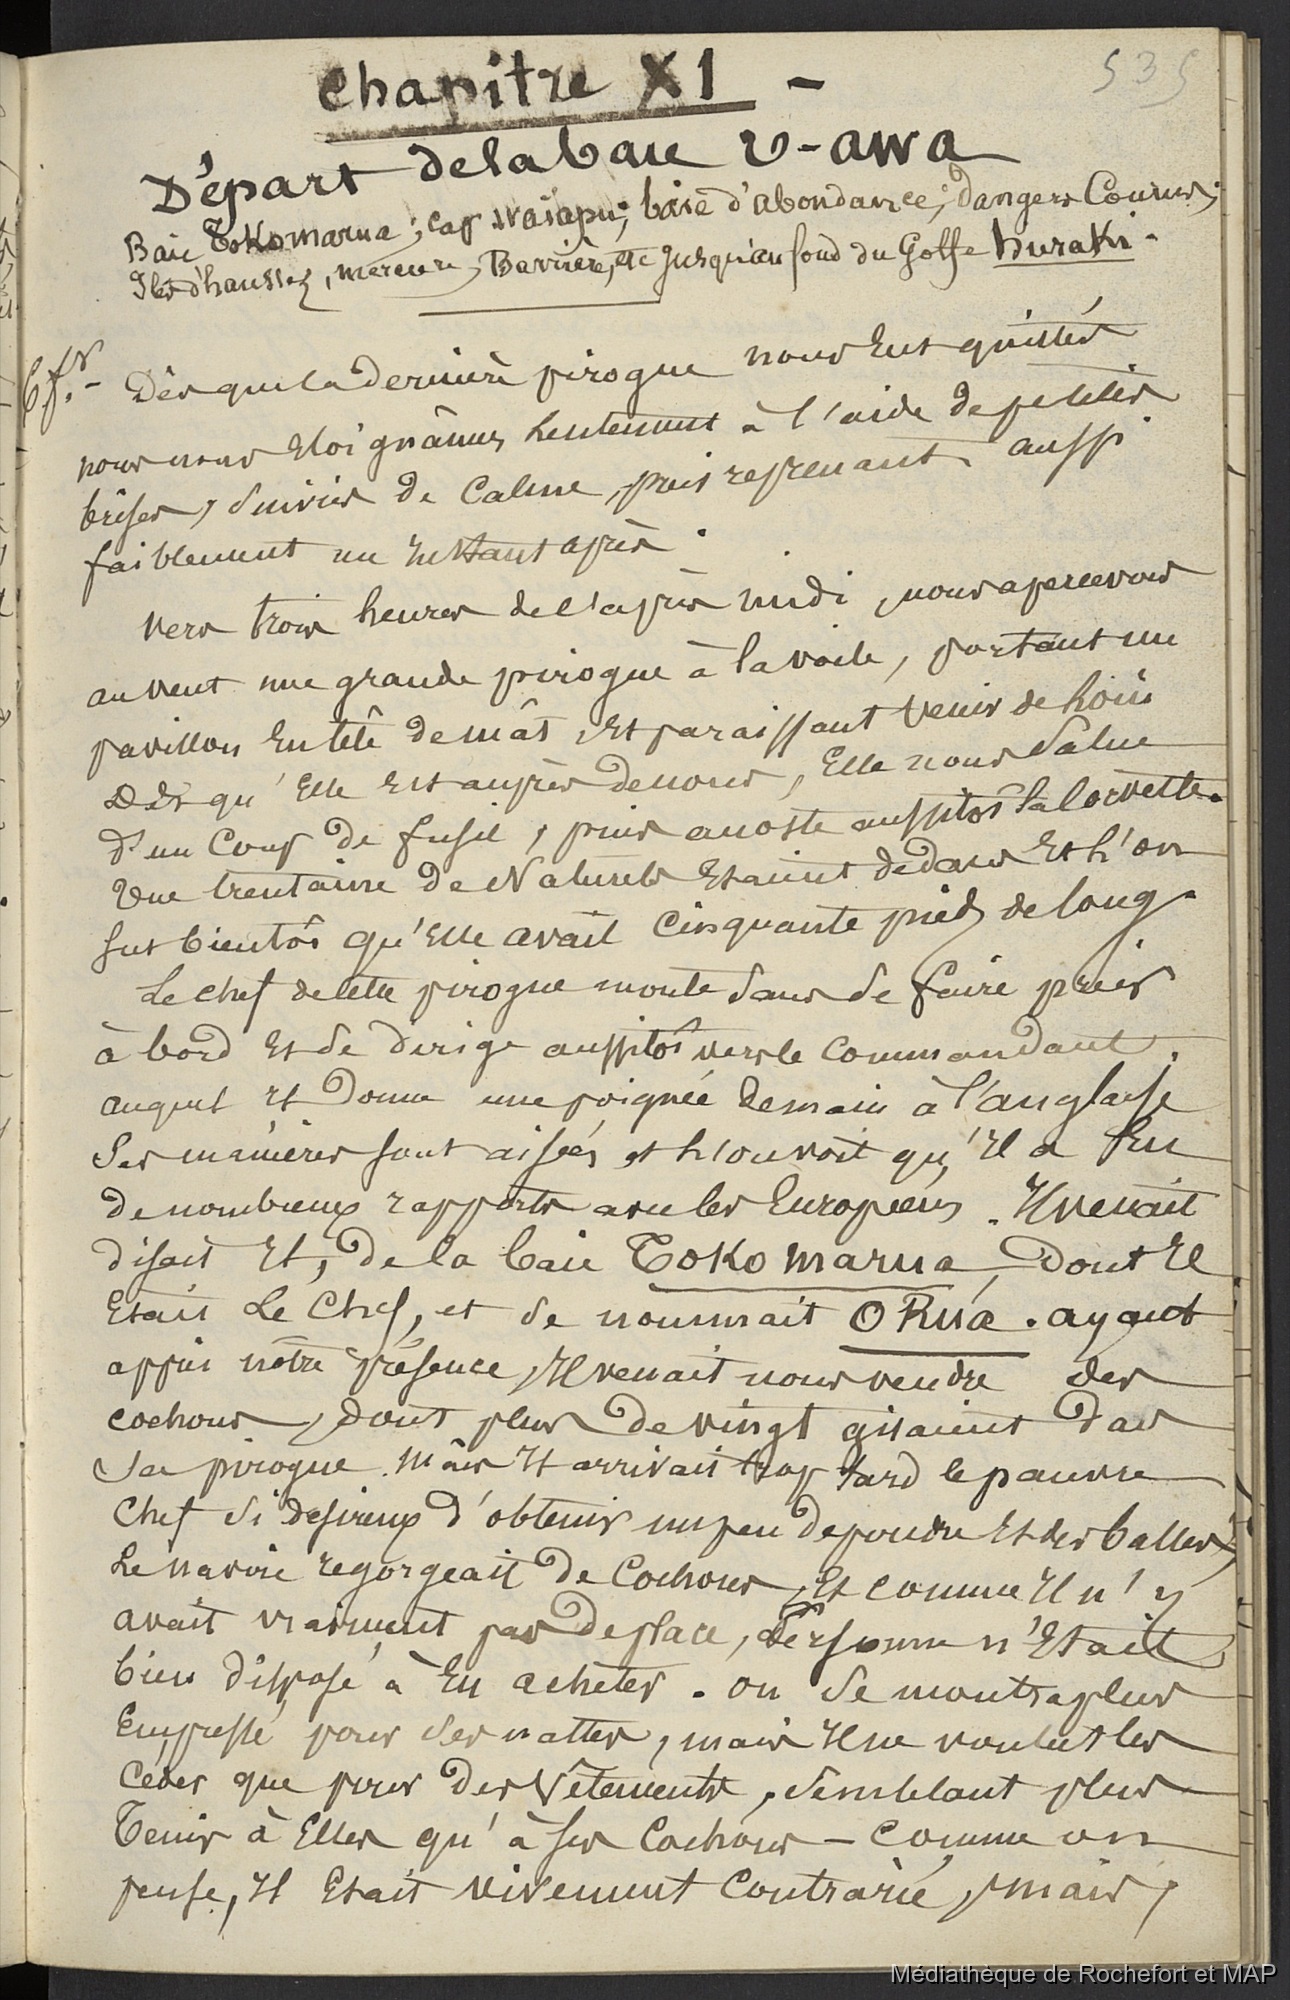 535
Chapitre XI -
Départ de la baie U-awa
Baie Tokomarua; cap Waiapu; baie d'abondance; dangers Courus;
Iles d'haussez, mercure, Barrière, etc Jusqu'au fond du Golfe huraki.
6 fr. - Dès que la dernière pirogue nous Eut quittés
nous nous Eloignâmes Lentement à l'aide de petites
brises, suivies de Calme, puis reprenant aussi
faiblement un Instant après.
Vers trois heures de l'après midi, nous apercevons
au vent une grande pirogue à la voile, portant un
pavillon En tête de mât, Et paraissant venir de Loin
Dès qu'Elle Est auprès de nous, Elle nous salue
d'un Coup de fusil, puis accoste aussitôt la Corvette.
Une trentaine de Naturels Etaient dedans Et L'on
sut bientôt qu'Elle avait Cinquante pieds de long.
Le chef de cette pirogue monte sans se faire prier
à bord Et se dirige aussitôt vers le Commandant
auquel Il donne une poignée de main à l'anglaise
Ses manières sont aisées, et L'on voit qu'Il a Eu
de nombreux rapports avec les Européens. Il venait
disait Il, de la baie Tokomarua, dont Il
Etait Le Chef, et se nommait ORua. ayant
appris nôtre présence, Il venait nous vendre des
cochons, dont plus de vingt gisaient dans
sa pirogue. Mais Il arrivait trop tard le pauvre
Chef si desireux d'obtenir un peu de poudre Et des balles,
Le navire regorgeait de Cochons, Et comme Il n'y
avait vraiment pas de place, Personne n'Etait
bien disposé à En acheter. on se montra plus
Empressé pour ses nattes, mais Il ne voulut les
Céder que pour des Vêtements, semblant plus
Tenir à Elles qu'à ses Cochons - Comme on
pense, Il Etait vivement Contrarié, mais,
Médiathèque de Rochefort et MAP